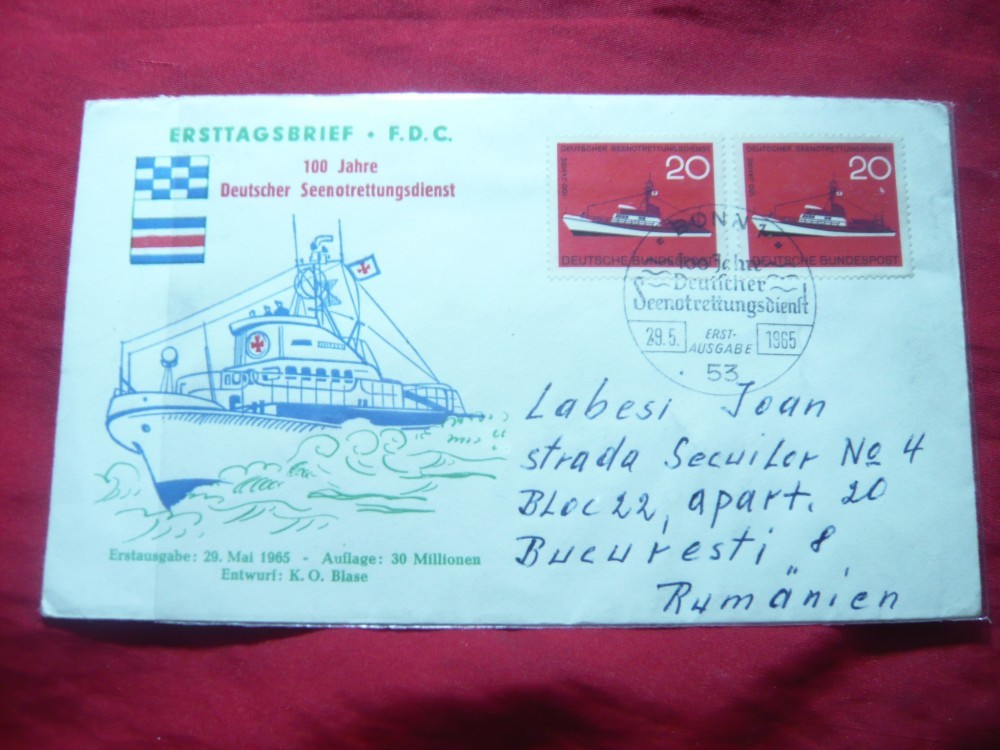 ERSTTAGSBRIEF · F.D.C.
100 Jahre
Deutscher Seenotrettungsdienst
DEUTSCHER SEENOTRETTUNGSDIENST
20
DEUTSCHE BUNDESPOST
DEUTSCHER SEENOTRETTUNGSDIENST
20
DEUTSCHE BUNDESPOST
BONN
100 Jahre
Deutscher
Seenotrettungsdienst
29.5. ERST-AUSGABE 1965
53
Labesi Joan
strada Secuilor No 4
Bloc 22, apart. 20
Bucuresti 8
Rumänien
Erstausgabe: 29. Mai 1965 - Auflage: 30 Millionen
Entwurf: K. O. Blase